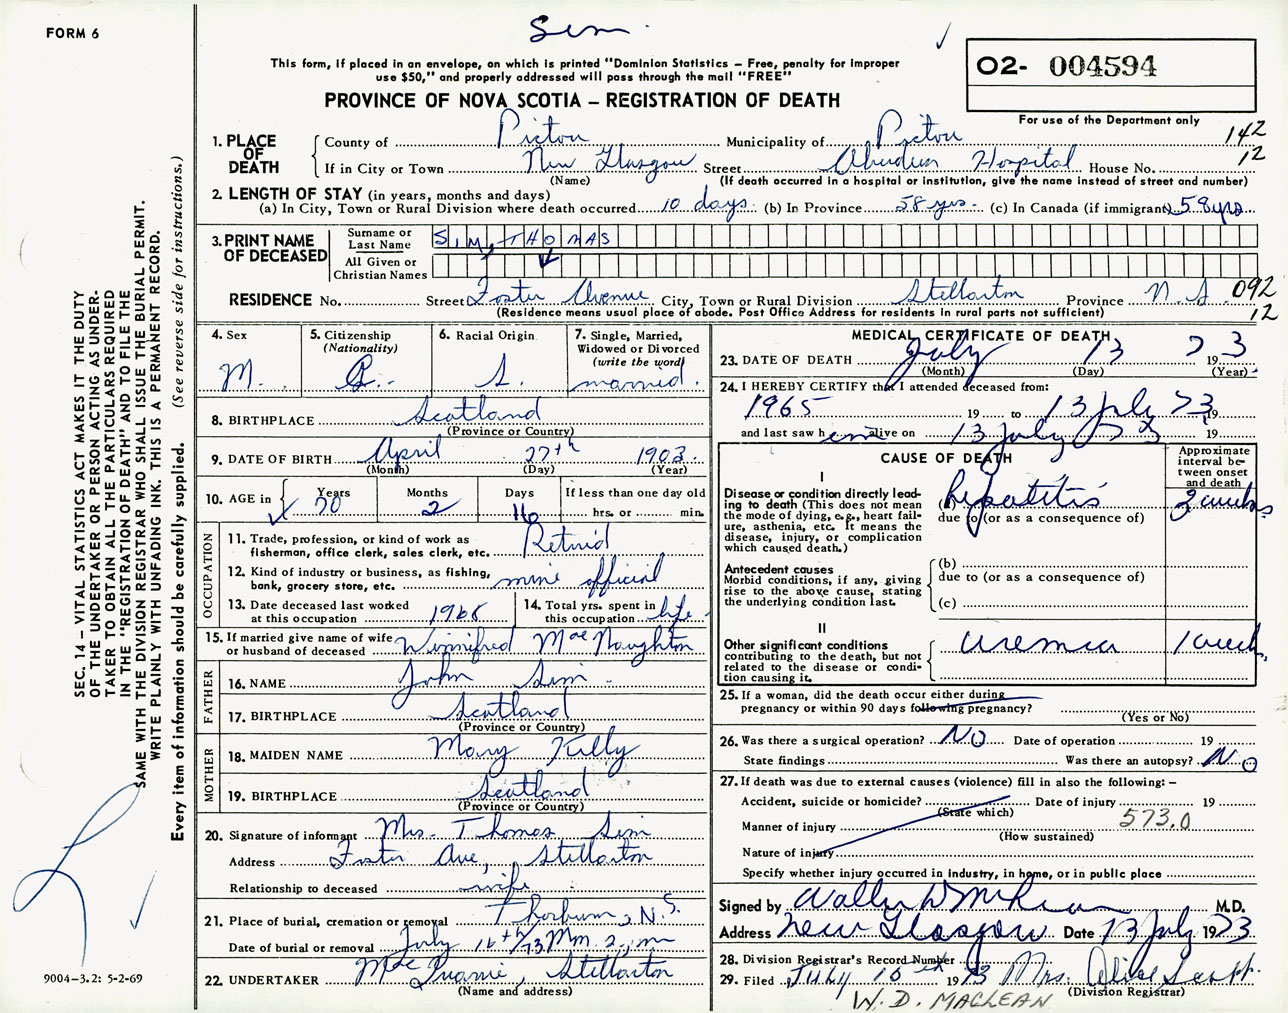 FORM 6
Sim
This form, if placed in an envelope, on which is printed "Dominion Statistics – Free, penalty for improper
use $50," and properly addressed will pass through the mail "FREE"
PROVINCE OF NOVA SCOTIA – REGISTRATION OF DEATH
02- 004594
For use of the Department only
142
12
1. PLACE OF DEATH
County of Pictou Municipality of Pictou
If in City or Town New Glasgow Street Aberdeen Hospital House No.
(Name) (If death occurred in a hospital or institution, give the name instead of street and number)
2. LENGTH OF STAY (in years, months and days)
(a) In City, Town or Rural Division where death occurred 10 days (b) In Province 58 yrs. (c) In Canada (if immigrant) 58 yrs
3. PRINT NAME OF DECEASED
Surname or Last Name SIM, THOMAS
All Given or Christian Names
RESIDENCE No. Street Foster Avenue City, Town or Rural Division Stellarton Province N.S. 092
(Residence means usual place of abode. Post Office Address for residents in rural parts not sufficient) 12
4. Sex M.
5. Citizenship (Nationality) C.
6. Racial Origin S.
7. Single, Married, Widowed or Divorced (write the word) married.
8. BIRTHPLACE Scotland
(Province or Country)
9. DATE OF BIRTH April 27th 1903
(Month) (Day) (Year)
10. AGE in Years 70 Months 2 Days 16 If less than one day old hrs. or min.
OCCUPATION
11. Trade, profession, or kind of work as
fisherman, office clerk, sales clerk, etc. Retired
12. Kind of industry or business, as fishing,
bank, grocery store, etc. mine official
13. Date deceased last worked
at this occupation 1968
14. Total yrs. spent in
this occupation life
15. If married give name of wife
or husband of deceased Winnifred MacNaughton
FATHER
16. NAME John Sim
17. BIRTHPLACE Scotland
(Province or Country)
MOTHER
18. MAIDEN NAME Mary Kelly
19. BIRTHPLACE Scotland
(Province or Country)
20. Signature of informant Mrs. Thomas Sim
Address Foster Ave, Stellarton
Relationship to deceased wife
21. Place of burial, cremation or removal Thorburn, N.S.
Date of burial or removal July 16th/73
22. UNDERTAKER Stellarton
(Name and address)
MEDICAL CERTIFICATE OF DEATH
23. DATE OF DEATH July 13 1973
(Month) (Day) (Year)
24. I HEREBY CERTIFY that I attended deceased from:
1965 19 to 13 July 73 19
and last saw him alive on 13 July 73 19
CAUSE OF DEATH
Approximate interval between onset and death
I
Disease or condition directly leading
to death (This does not mean
the mode of dying, e.g., heart failure,
asthenia, etc. It means the
disease, injury, or complication
which caused death.)
(a) hepatitis 3 weeks
due to (or as a consequence of)
Antecedent causes
Morbid conditions, if any, giving
rise to the above cause, stating
the underlying condition last.
(b)
due to (or as a consequence of)
(c)
II
Other significant conditions
contributing to the death, but not
related to the disease or condition
causing it.
uremia 1 week
25. If a woman, did the death occur either during
pregnancy or within 90 days following pregnancy?
(Yes or No)
26. Was there a surgical operation? NO Date of operation 19
State findings Was there an autopsy? No
27. If death was due to external causes (violence) fill in also the following: –
Accident, suicide or homicide? Date of injury 19
(State which)
Manner of injury 573.0
(How sustained)
Nature of injury
Specify whether injury occurred in industry, in home, or in public place
Signed by M.D.
Address New Glasgow Date 13 July 1973
28. Division Registrar's Record Number
29. Filed July 16th 1973 Mrs. Alice Scott
(Division Registrar)
W. D. MACLEAN
SEC. 14 – VITAL STATISTICS ACT MAKES IT THE DUTY
OF THE UNDERTAKER OR PERSON ACTING AS UNDERTAKER
TO OBTAIN ALL THE PARTICULARS REQUIRED
IN THE "REGISTRATION OF DEATH" AND TO FILE THE
SAME WITH THE DIVISION REGISTRAR WHO SHALL ISSUE THE BURIAL PERMIT.
WRITE PLAINLY WITH UNFADING INK. THIS IS A PERMANENT RECORD.
Every item of information should be carefully supplied. (See reverse side for instructions.)
9004–3.2: 5-2-69